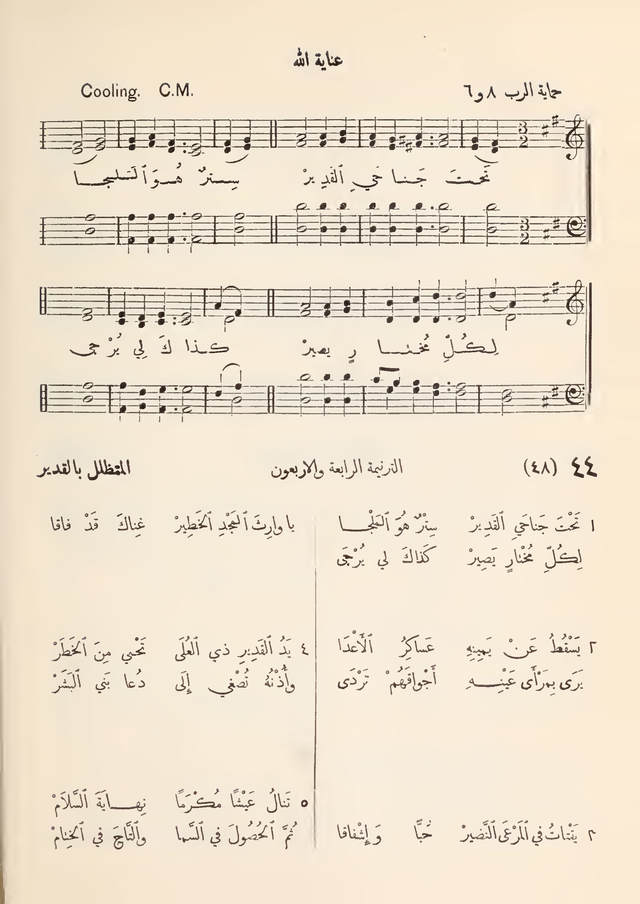 عناية الله
حماية الرب ٨ و ٦ Cooling. C.M.
تَحتَ جَناحَي القَدِيرْ سِترٌ هُوَ ٱلمَلجا
لِكُلِّ مُختارٍ يَصيرْ كَذاكَ لي يُرْجى
٤٤ (٤٨) الترنيمة الرابعة والاربعون المتظلل بالقدير
١ تَحْتَ جَناحَيِ القَدِيرْ سِتْرٌ هُوَ ٱلمَلْجا
لِكُلِّ مُخْتارٍ يَصِيرْ كَذَاكَ لي يُرْجَى
٢ يَسْقُطُ عَنْ يَمِينِهِ عَساكِرُ ٱلأَعْدَا
يَرَى بِمَرْأَى عَيْنِهِ أَجْواقَهُمْ تَرْدَى
٣ يَقْتاتُ في ٱلمَرْعَى ٱلنَّضِيرْ حُبًّا وَإِشْفاقا
يا وارِثَ ٱلمَجْدِ ٱلخَطِيرْ غِناكَ قَدْ فاقا
٤ يَدُ ٱلقَدِيرِ ذي ٱلعُلَى تَحْمي مِنَ ٱلخَطَرْ
وأُذْنُهُ تُصْغي إِلَى دُعا بَني ٱلبَشَرْ
٥ تَنالُ عَيْشًا مُكْرَمًا نِهايَةَ ٱلسَّلامْ
ثُمَّ ٱلحُصُولَ في ٱلسَّما والتَّاجَ في ٱلخِتامْ